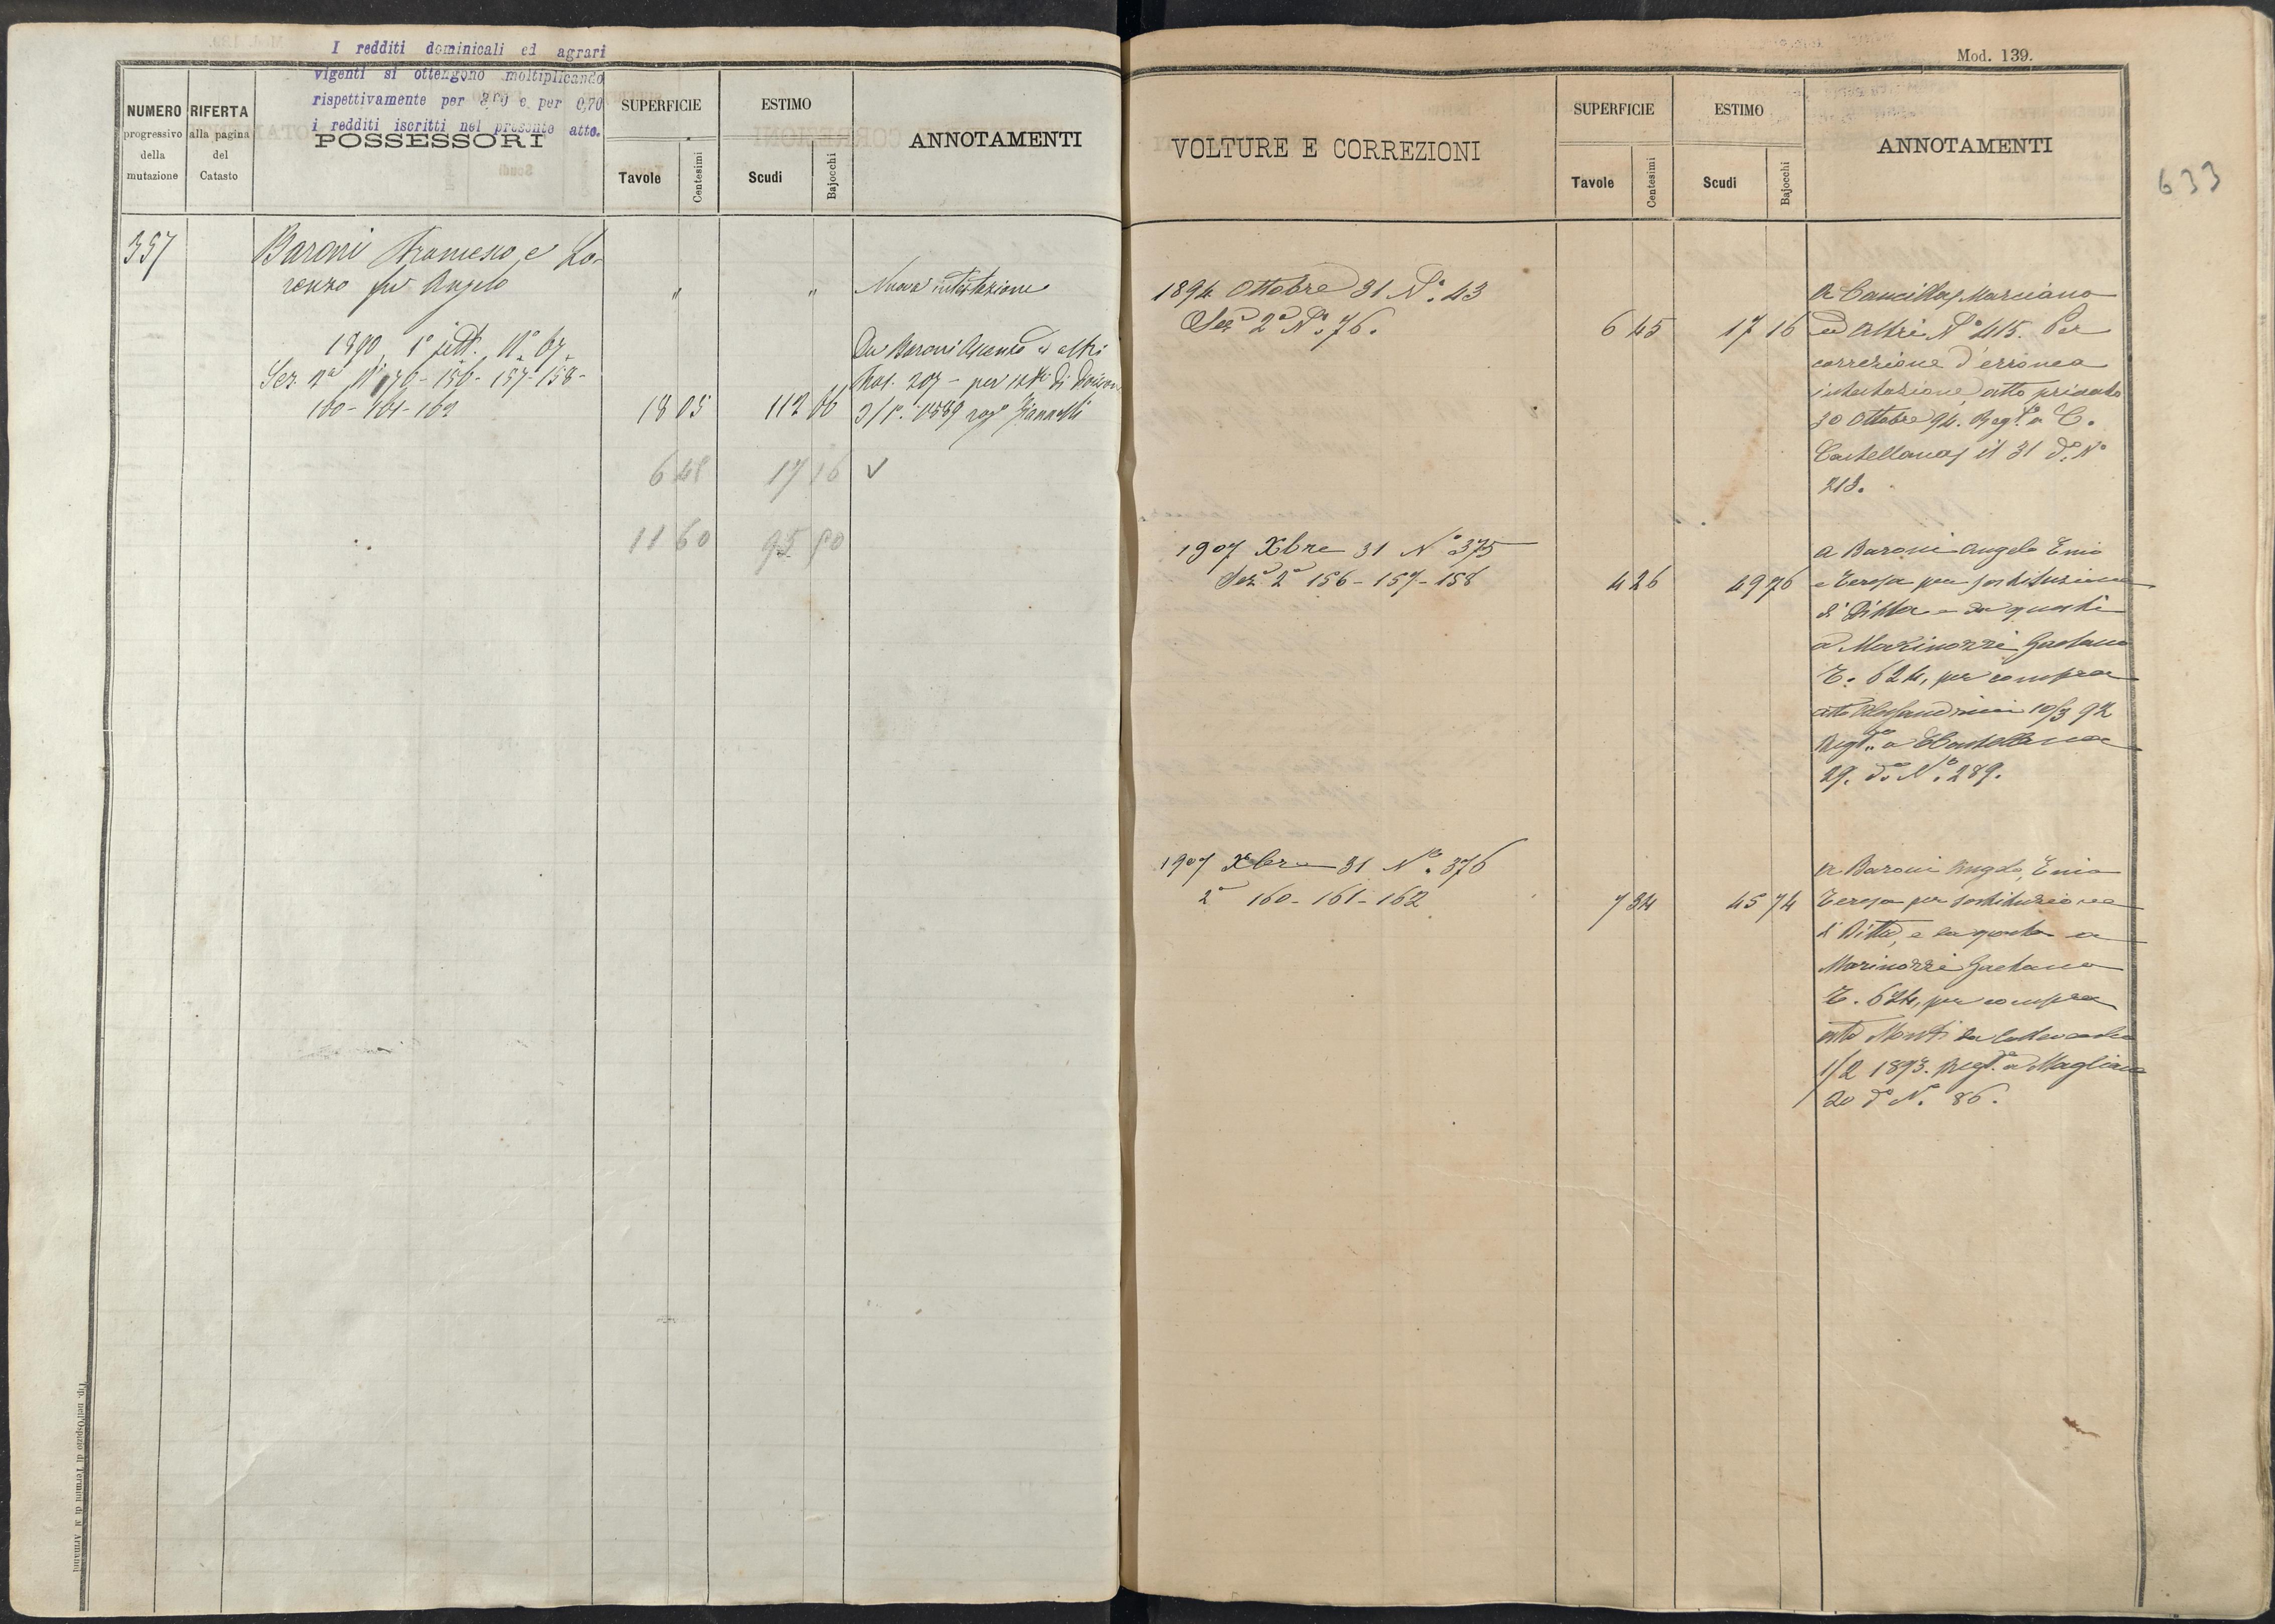 I redditi dominicali ed agrari
vigenti si ottengono moltiplicando
rispettivamente per e per 0,70
i redditi iscritti nel presente atto.
NUMERO
progressivo
della
mutazione
RIFERTA
alla pagina
del
Catasto
POSSESSORI
SUPERFICIE
Tavole
Centesimi
ESTIMO
Scudi
Bajocchi
ANNOTAMENTI
357
Baroni Francesco e Lo-
renzo fu Angelo " " Nuova intestazione
1890, 1° sett. N° 67
Sez. 2a N° 76 - 156 - 157 - 158 -
160 - 161 - 162 18 05 112 66
Da Baroni ed altri
207 - per di divisione
Giannelli
6 45 17 16 ✓
11 60 95 50
Tip. nell'Ospizio di Termini di M. Armanni
Mod. 139.
633
VOLTURE E CORREZIONI
SUPERFICIE
Tavole
Centesimi
ESTIMO
Scudi
Bajocchi
ANNOTAMENTI
1894 Ottobre 31 N°. 43
Sez. 2a N°. 76. 6 45 17 16
A Cancilla Marciano
ed Altri N° 415. Per
correzione d'erronea
intestazione atto privato
30 Ottobre 94. Regto a C.
Castellana il 31 do. N°
213.
1907 Xbre 31 N° 375
Sez. 2a 156 - 157 - 158 4 26 49 76
a Baroni Angelo Enio
e Teresa per sostituzione
di Ditta e da questi
a Marinozzi Gaetano
T. 624, per compra
atto Alessandrini 10/3 92
Regto a CCastellana
29. do N°. 289.
1907 Xbre 31 N°. 376
2a 160 - 161 - 162 7 34 45 74
a Baroni Angelo, Enio
Teresa per sostituzione
di Ditta, e da questi a
Marinozzi Gaetano
T. 624, per compra
atto Monti da
1/2 1893. Regto a Magliano
20 do N. 86.